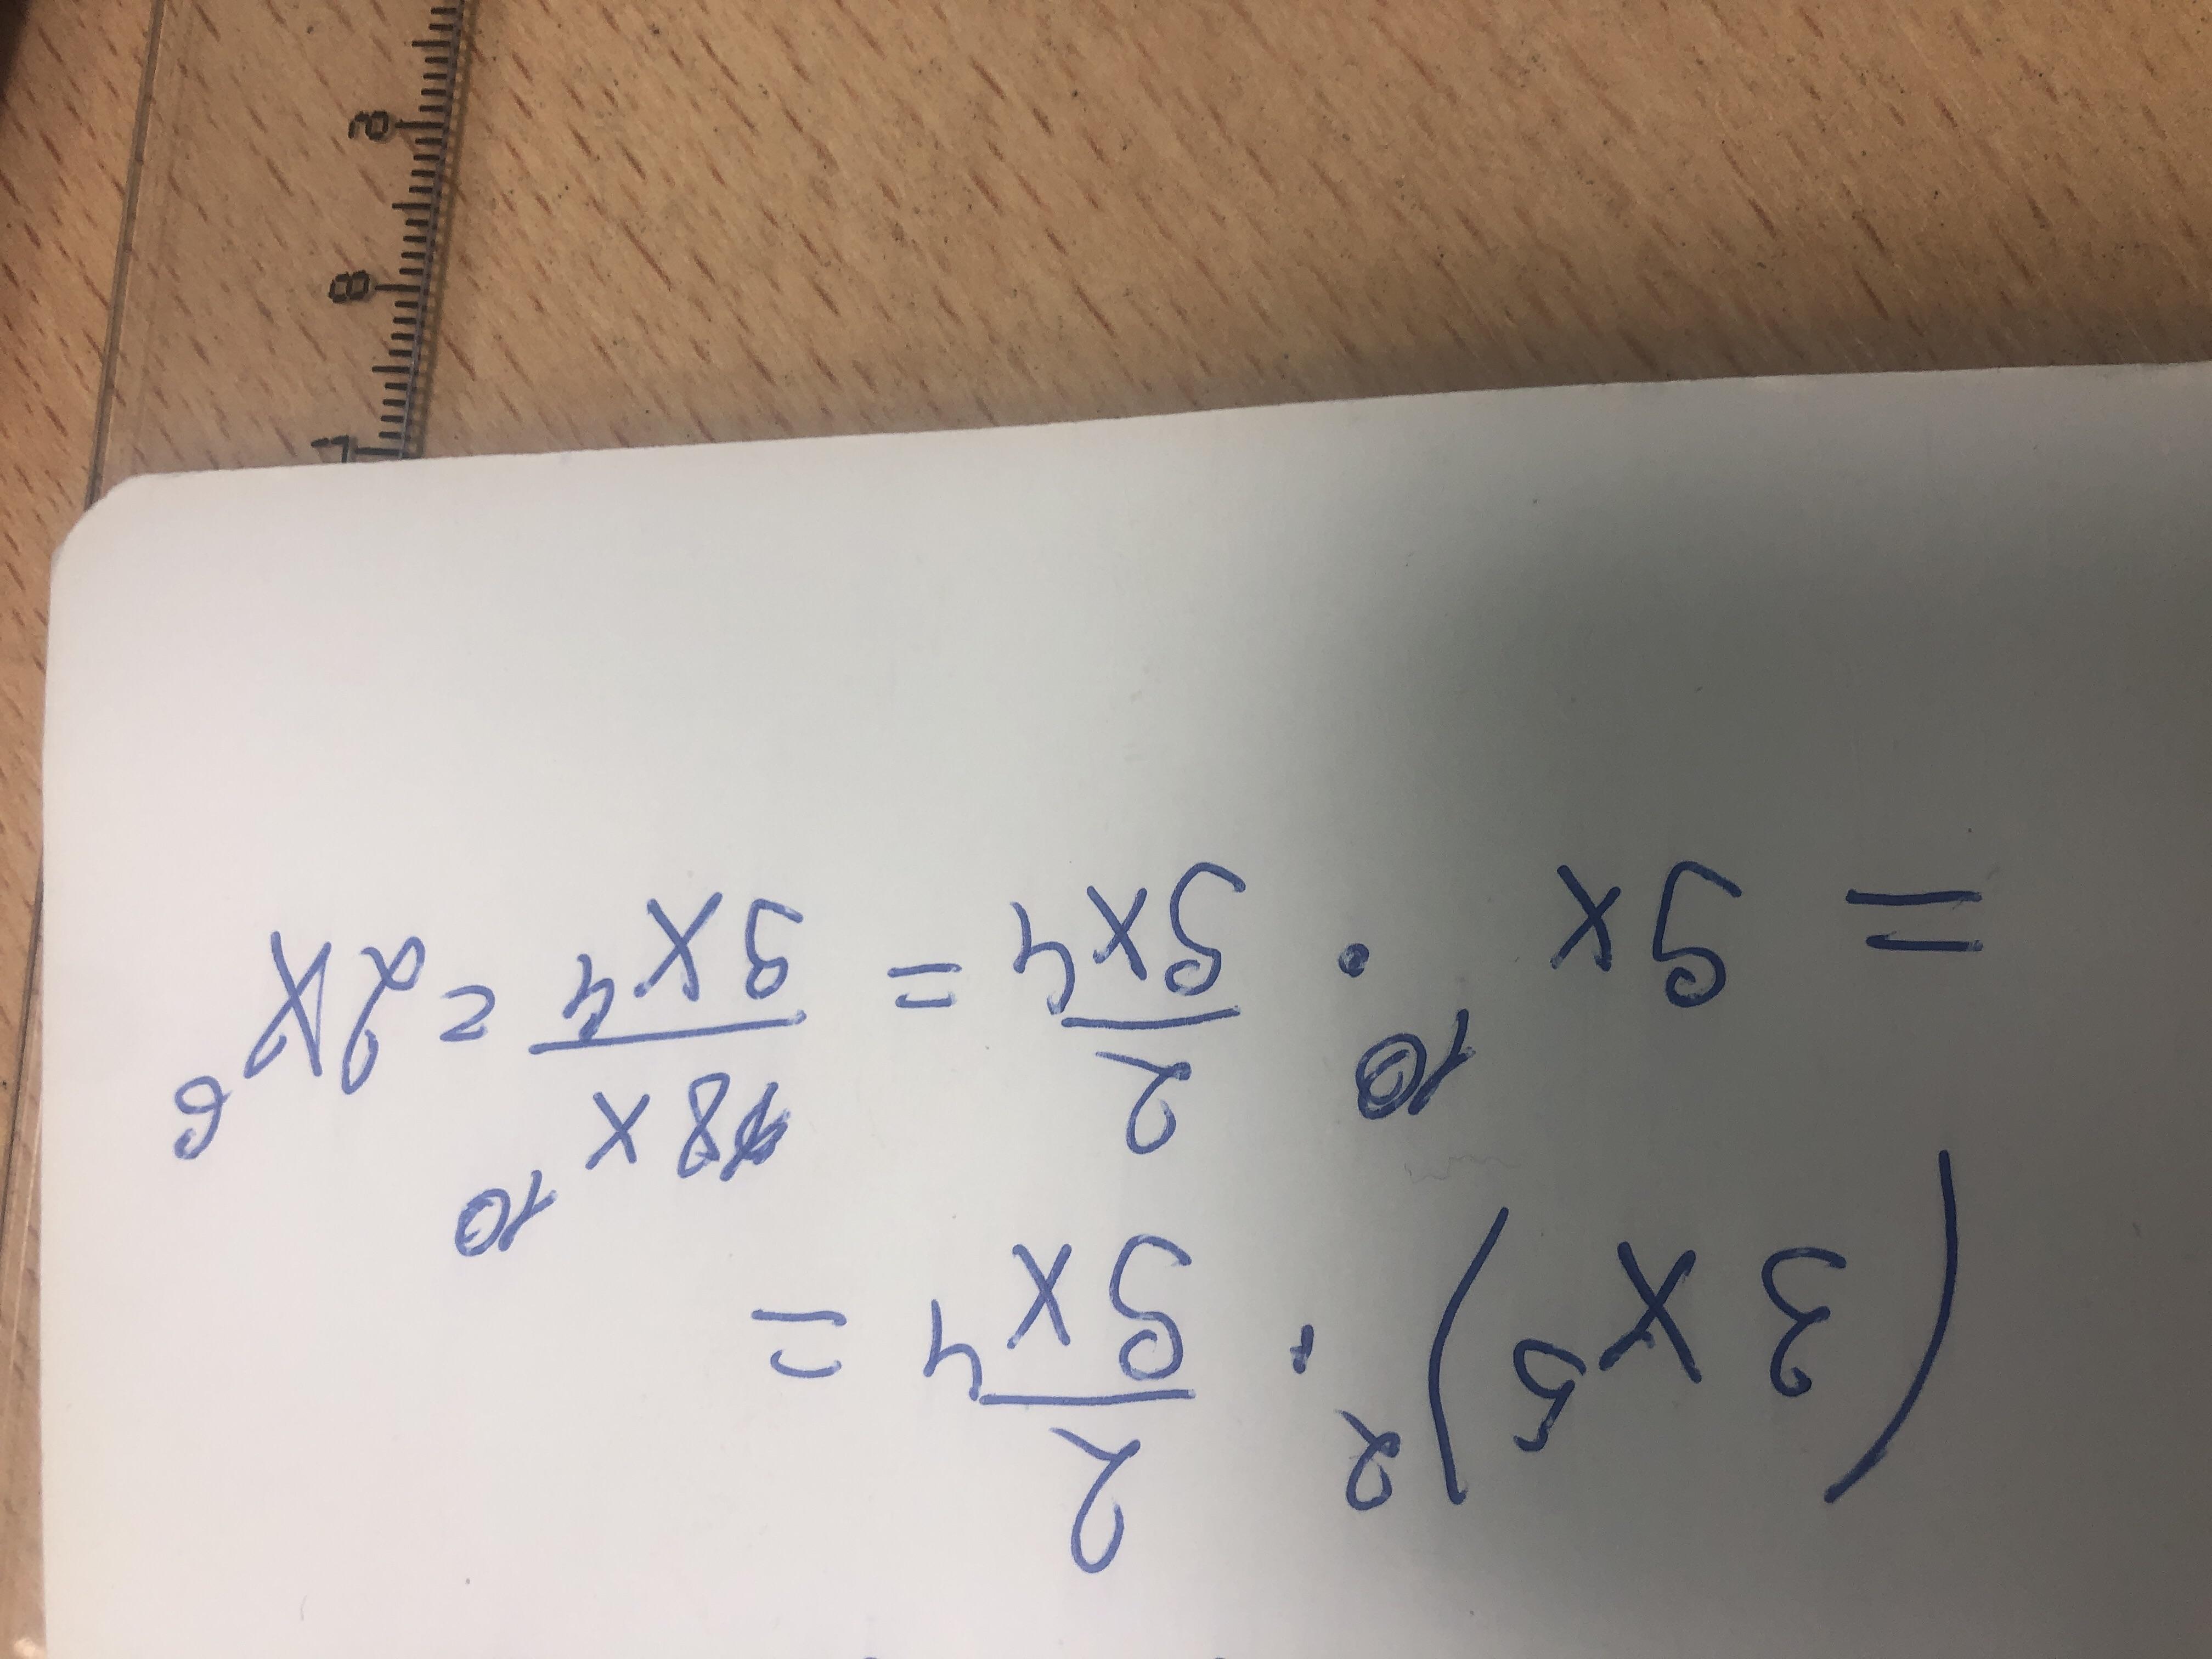 (3x⁵)² · 2/9x⁴ =
= 9x¹⁰ · 2/9x⁴ = 18x¹⁰/9x⁴ = 2x⁶
7
8
9